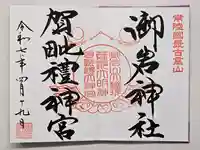 常陸國最古霊山
御岩神社
賀毗禮神宮
令和七年四月十九日